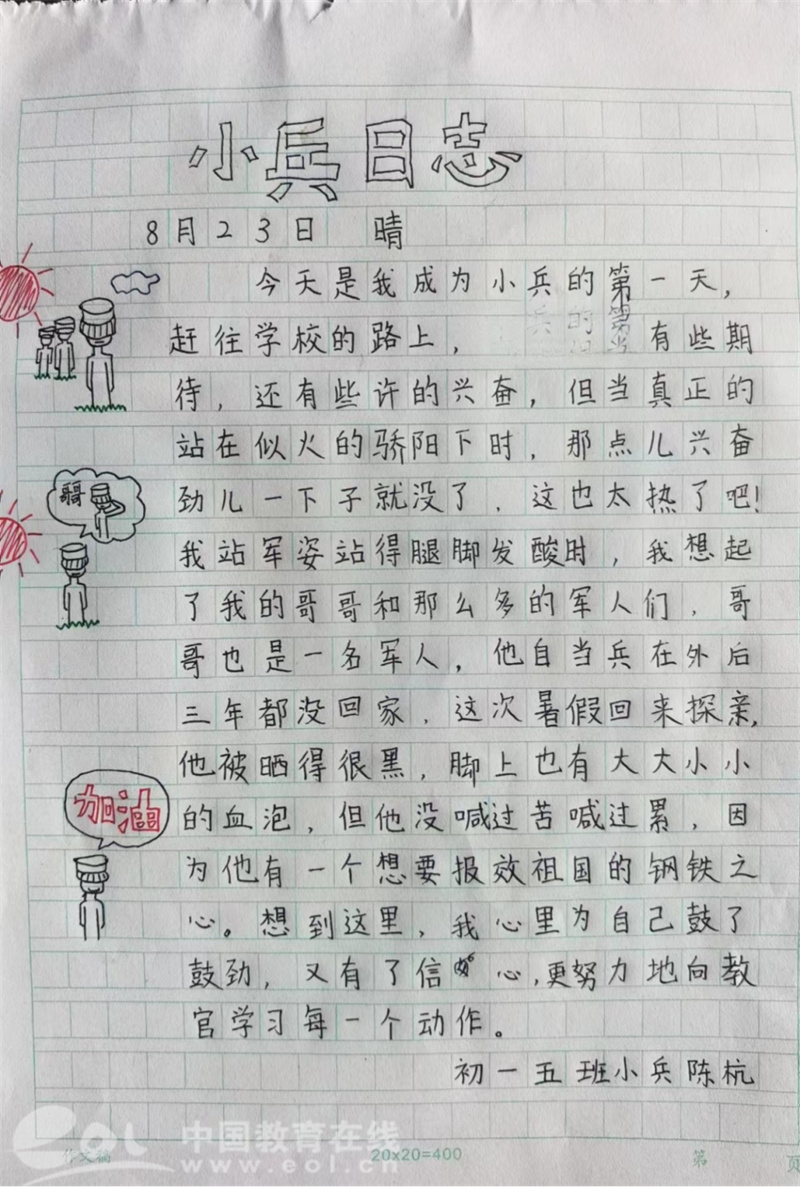 小兵日志
8月23日 晴
今天是我成为小兵的第一天，
赶往学校的路上， 有些期
待，还有些许的兴奋，但当真正的
站在似火的骄阳下时，那点儿兴奋
劲儿一下子就没了，这也太热了吧！
哥哥
我站军姿站得腿脚发酸时，我想起
了我的哥哥和那么多的军人们，哥
哥也是一名军人，他自当兵在外后
三年都没回家，这次暑假回来探亲，
他被晒得很黑，脚上也有大大小小
加油
的血泡，但他没喊过苦喊过累，因
为他有一个想要报效祖国的钢铁之
心。想到这里，我心里为自己鼓了
鼓劲，又有了信心，更努力地向教
官学习每一个动作。
初一五班小兵陈杭
eol 中国教育在线
www.eol.cn
作文稿 20×20=400 第 页